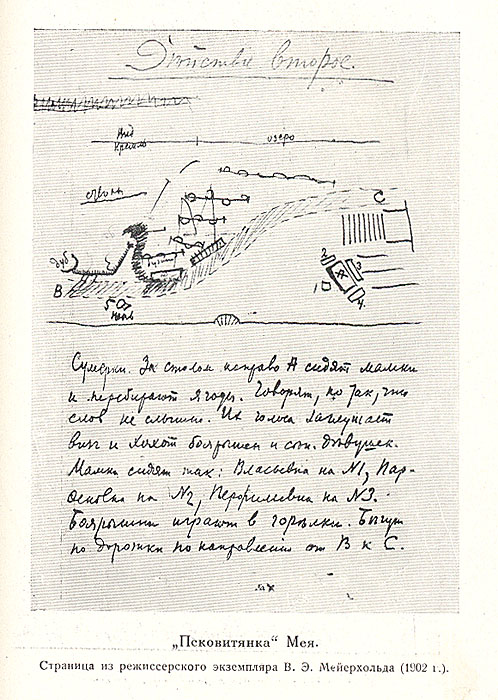 Действие второе.
вид
Кремль
озеро
дуб
B
C
5
2
3
1
4
Сумерки. За столом направо A сидят мамки
и перебирают ягоды. Говорят, но так, что
слов не слышно. Их голоса заглушает
визг и хохот боярышен и сен. девушек.
Мамки сидят так: Власьевна на №1, Пар-
феновна на №2, Перфильевна на №3.
Боярышни играют в горелки. Бегут
по дорожке по направлению от B к C.
„Псковитянка“ Мея.
Страница из режиссерского экземпляра В. Э. Мейерхольда (1902 г.).